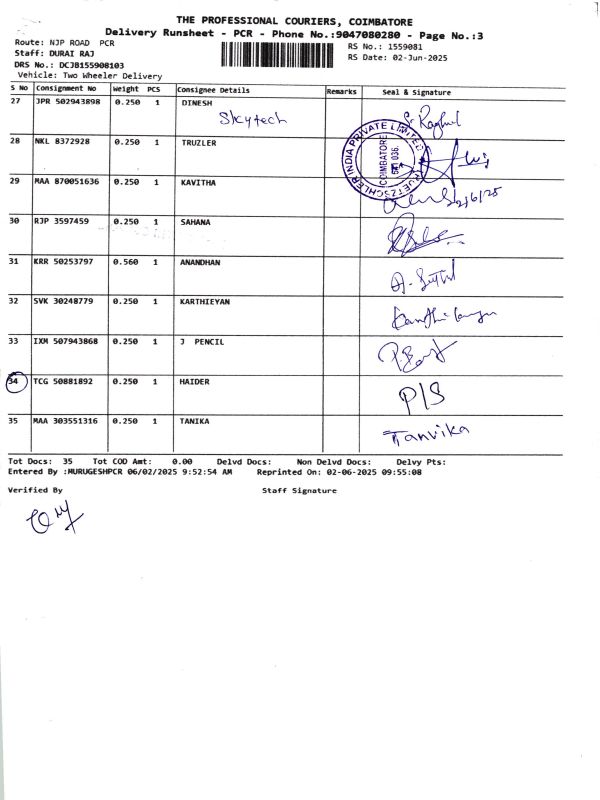 THE PROFESSIONAL COURIERS, COIMBATORE
Delivery Runsheet - PCR - Phone No.:9047080280 - Page No.:3
Route: NJP ROAD PCR
RS No.: 1559081
Staff: DURAI RAJ
RS Date: 02-Jun-2025
DRS No.: DCJB155908103
Vehicle: Two Wheeler Delivery
S No Consignment No Weight PCS Consignee Details Remarks Seal & Signature
27 JPR 502943898 0.250 1 DINESH
Skytech
S. Raghul
28 NKL 8372928 0.250 1 TRUZLER
INDIA PRIVATE LIMITED
COIMBATORE
29 MAA 870051636 0.250 1 KAVITHA
2/6/25
30 RJP 3597459 0.250 1 SAHANA
31 KRR 50253797 0.560 1 ANANDHAN
32 SVK 30248779 0.250 1 KARTHIEYAN
33 IXM 507943868 0.250 1 J PENCIL
34 TCG 50881892 0.250 1 HAIDER
P/S
35 MAA 303551316 0.250 1 TANIKA
Tanvika
Tot Docs: 35 Tot COD Amt: 0.00 Delvd Docs: Non Delvd Docs: Delvy Pts:
Entered By :MURUGESHPCR 06/02/2025 9:52:54 AM Reprinted On: 02-06-2025 09:55:08
Verified By Staff Signature